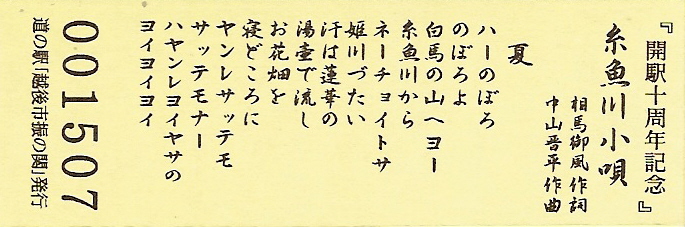 『開駅十周年記念』
糸魚川小唄
相馬御風作詞
中山晋平作曲
夏
ハーのぼろ
のぼろよ
白馬の山へヨー
糸魚川から
ネーチョイトサ
姫川づたい
汗は蓮華の
湯壷で流し
お花畑を
寝どころに
ヤンレサッテモ
サッテモナー
ハヤンレヨイヤサの
ヨイヨイヨイ
001507
道の駅「越後市振の関」発行